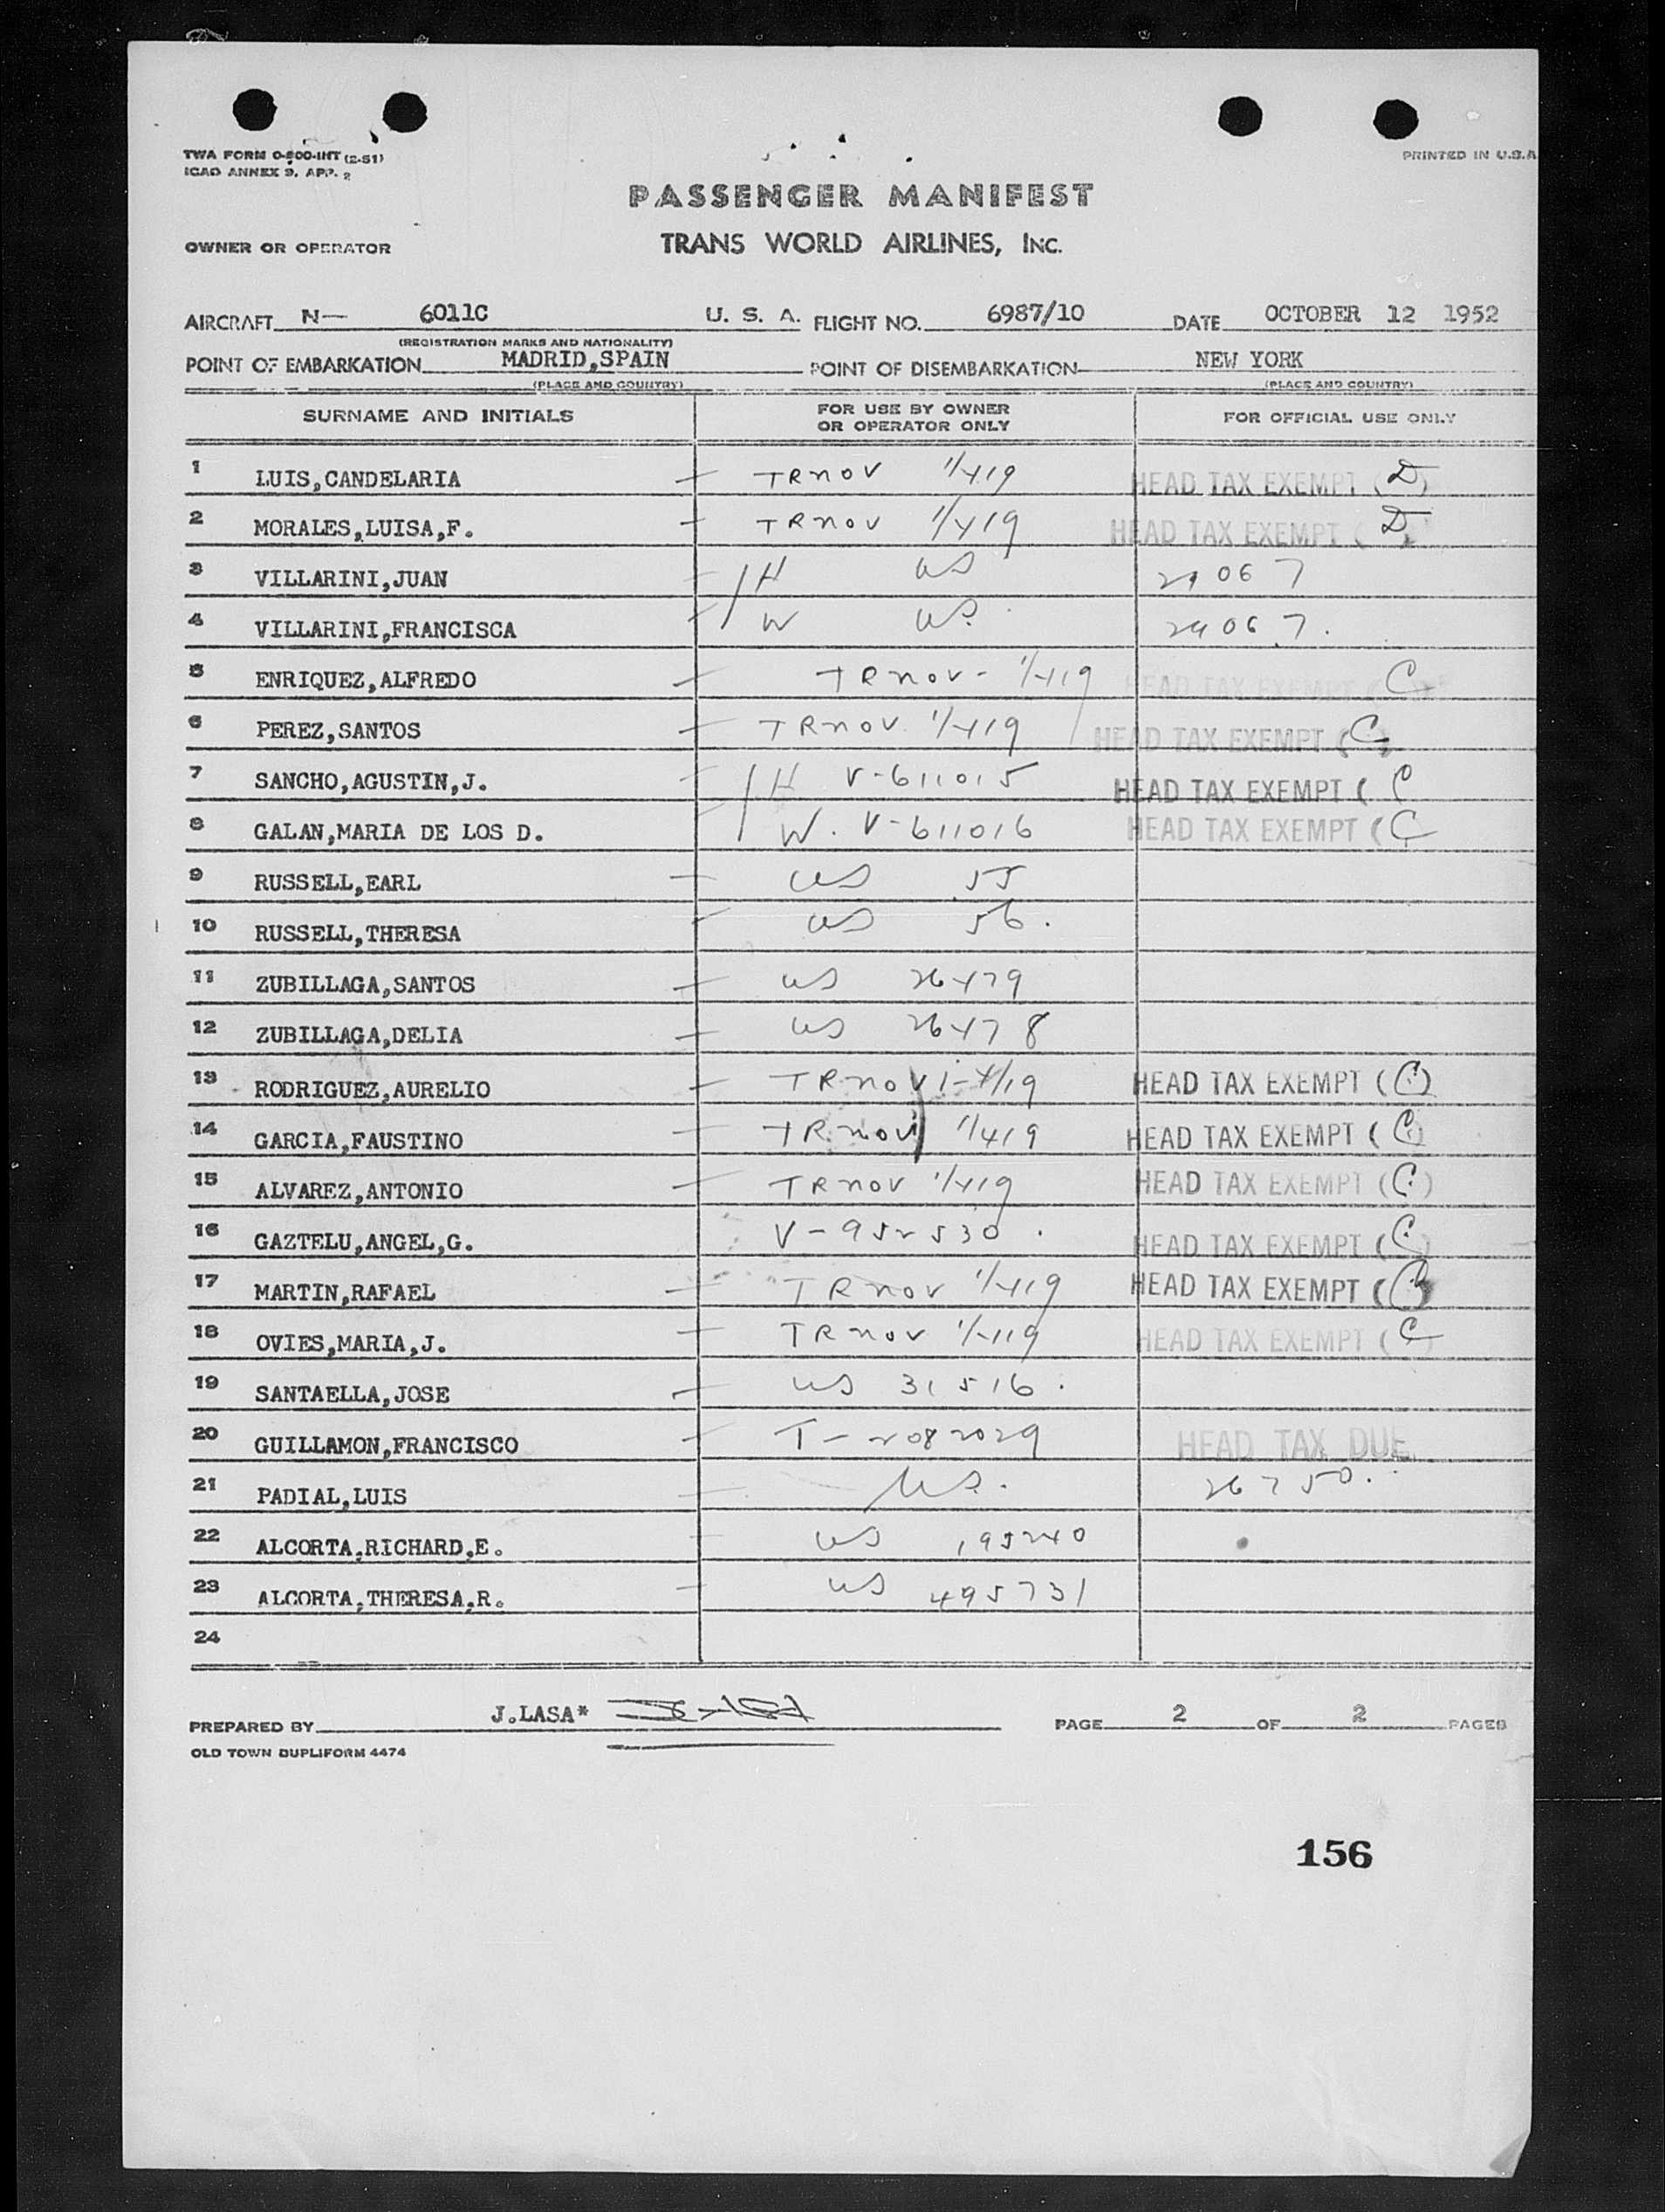 TWA FORM O-800-INT (2-51)
ICAO ANNEX 9, APP. 2
PRINTED IN U.S.A
PASSENGER MANIFEST
OWNER OR OPERATOR TRANS WORLD AIRLINES, INC.
AIRCRAFT N— 6011C U. S. A. FLIGHT NO. 6987/10 DATE OCTOBER 12 1952
(REGISTRATION MARKS AND NATIONALITY)
POINT OF EMBARKATION MADRID,SPAIN POINT OF DISEMBARKATION NEW YORK
(PLACE AND COUNTRY) (PLACE AND COUNTRY)
SURNAME AND INITIALS FOR USE BY OWNER OR OPERATOR ONLY FOR OFFICIAL USE ONLY
1 LUIS,CANDELARIA — TRNOV 1/419 HEAD TAX EXEMPT (D)
2 MORALES,LUISA,F. — TRNOV 1/419 HEAD TAX EXEMPT (D)
3 VILLARINI,JUAN — H US 29067
4 VILLARINI,FRANCISCA — W US. 29067.
5 ENRIQUEZ,ALFREDO — TRNOV- 1/419 HEAD TAX EXEMPT (C)
6 PEREZ,SANTOS — TRNOV 1/419 HEAD TAX EXEMPT (C)
7 SANCHO,AGUSTIN,J. — H V-611015 HEAD TAX EXEMPT ( C
8 GALAN,MARIA DE LOS D. — W. V-611016 HEAD TAX EXEMPT (C
9 RUSSELL,EARL — US 55
10 RUSSELL,THERESA — US 56.
11 ZUBILLAGA,SANTOS — US 26479
12 ZUBILLAGA,DELIA — US 26478
13 RODRIGUEZ,AURELIO — TRNOV 1-4/19 HEAD TAX EXEMPT (C)
14 GARCIA,FAUSTINO — TRNOV 1/419 HEAD TAX EXEMPT (C)
15 ALVAREZ,ANTONIO — TRNOV 1/419 HEAD TAX EXEMPT (C)
16 GAZTELU,ANGEL,G. V-952530. HEAD TAX EXEMPT (C)
17 MARTIN,RAFAEL — TRNOV 1/419 HEAD TAX EXEMPT (
18 OVIES,MARIA,J. — TRNOV 1/419 HEAD TAX EXEMPT (C)
19 SANTAELLA,JOSE — US 31516.
20 GUILLAMON,FRANCISCO — T-2082029 HEAD TAX DUE
21 PADIAL,LUIS — US. 26750.
22 ALCORTA,RICHARD,E. — US 195240
23 ALCORTA,THERESA,R. — US 495731
24
PREPARED BY J.LASA* PAGE 2 OF 2 PAGES
OLD TOWN DUPLIFORM 4474
156